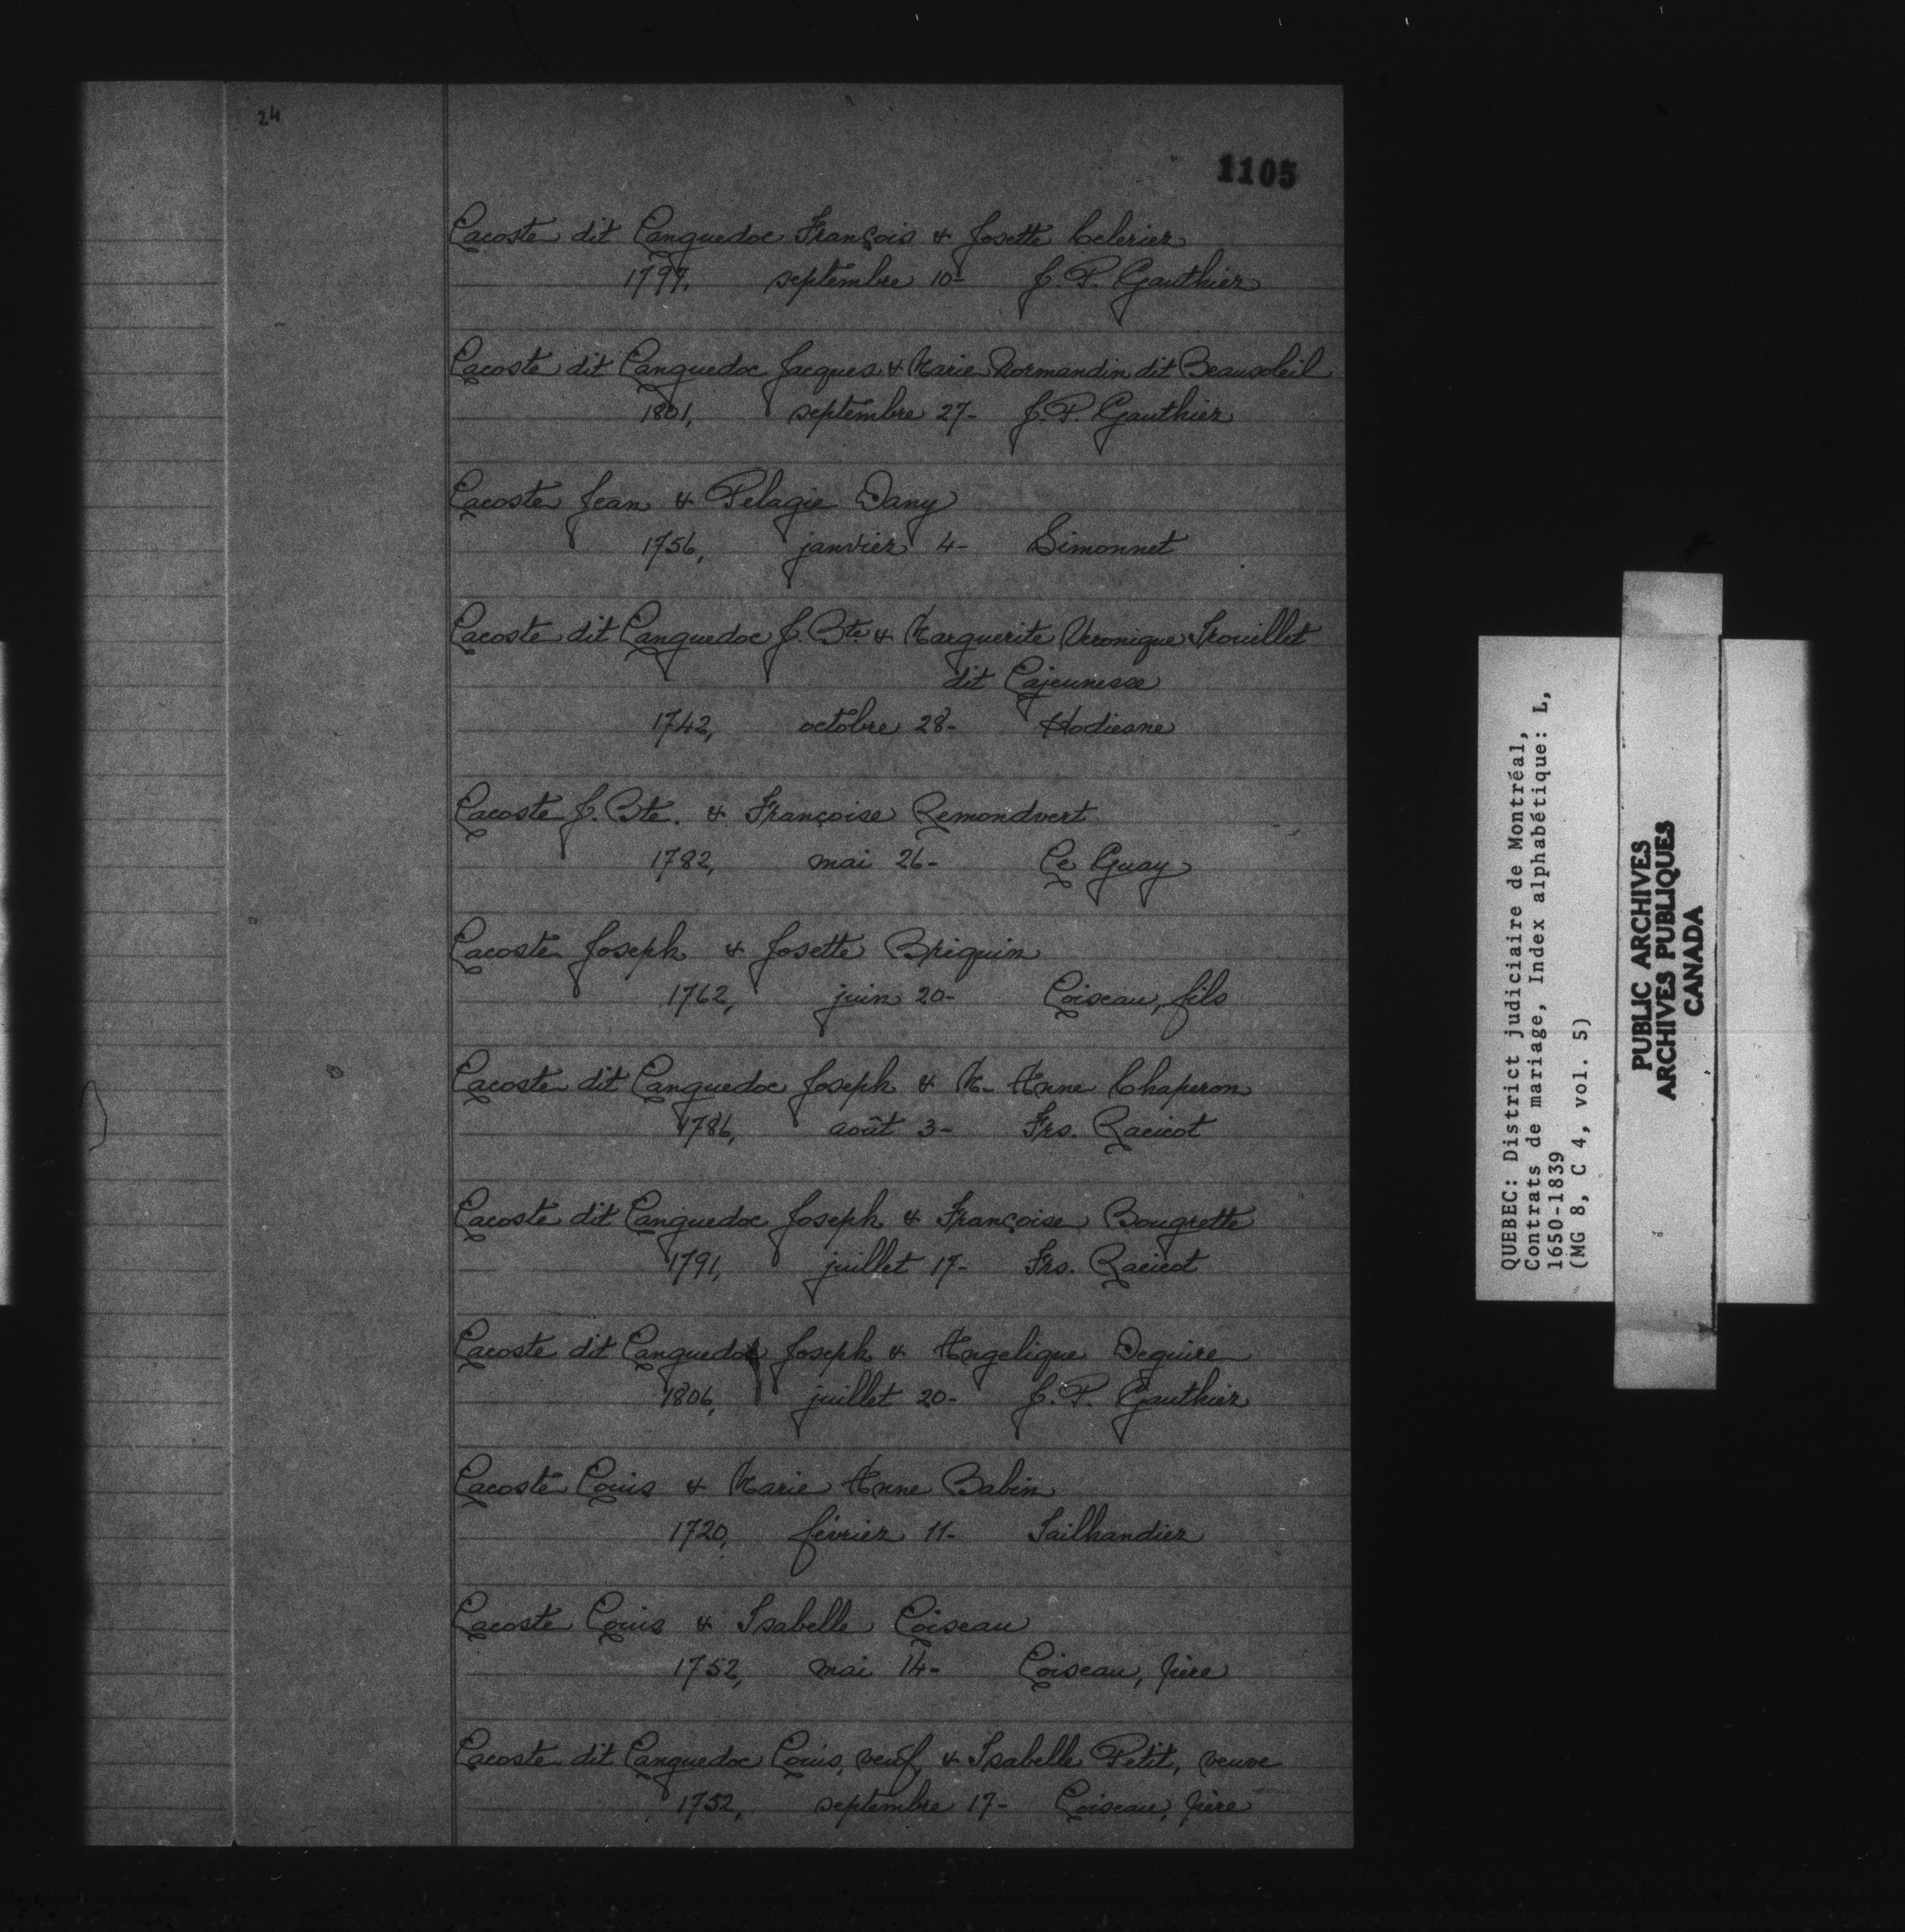 24
1105
Lacoste dit Languedoc François & Josette Celerier
1799, septembre 10- J. P. Gauthier
Lacoste dit Languedoc Jacques & Marie Normandin dit Beausoleil
1801, septembre 27- J. P. Gauthier
Lacoste Jean & Pelagie Dany
1756, janvier 4- Simonnet
Lacoste dit Languedoc J. Bte & Marguerite Veronique Trouillet
dit Lajeunesse
1742, octobre 28- Hodiesne
Lacoste J. Bte. & Françoise Remondvert
1782, mai 26- Le Guay
Lacoste Joseph & Josette Briquin
1762, juin 20- Loiseau, fils
Lacoste dit Languedoc Joseph & M. Anne Chaperon
1786, août 3- Frs. Racicot
Lacoste dit Languedoc Joseph & Françoise Bougrette
1791, juillet 17- Frs. Racicot
Lacoste dit Languedoc Joseph & Angelique Deguire
1806, juillet 20- J. P. Gauthier
Lacoste Louis & Marie Anne Babin
1720, février 11- Tailhandier
Lacoste Louis & Isabelle Loiseau
1752, mai 14- Loiseau, père
Lacoste dit Languedoc Louis, veuf, & Isabelle Petit, veuve
1752, septembre 17- Loiseau, père
QUEBEC: District judiciaire de Montréal,
Contrats de mariage, Index alphabétique: L,
1650-1839
(MG 8, C 4, vol. 5)
PUBLIC ARCHIVES
ARCHIVES PUBLIQUES
CANADA